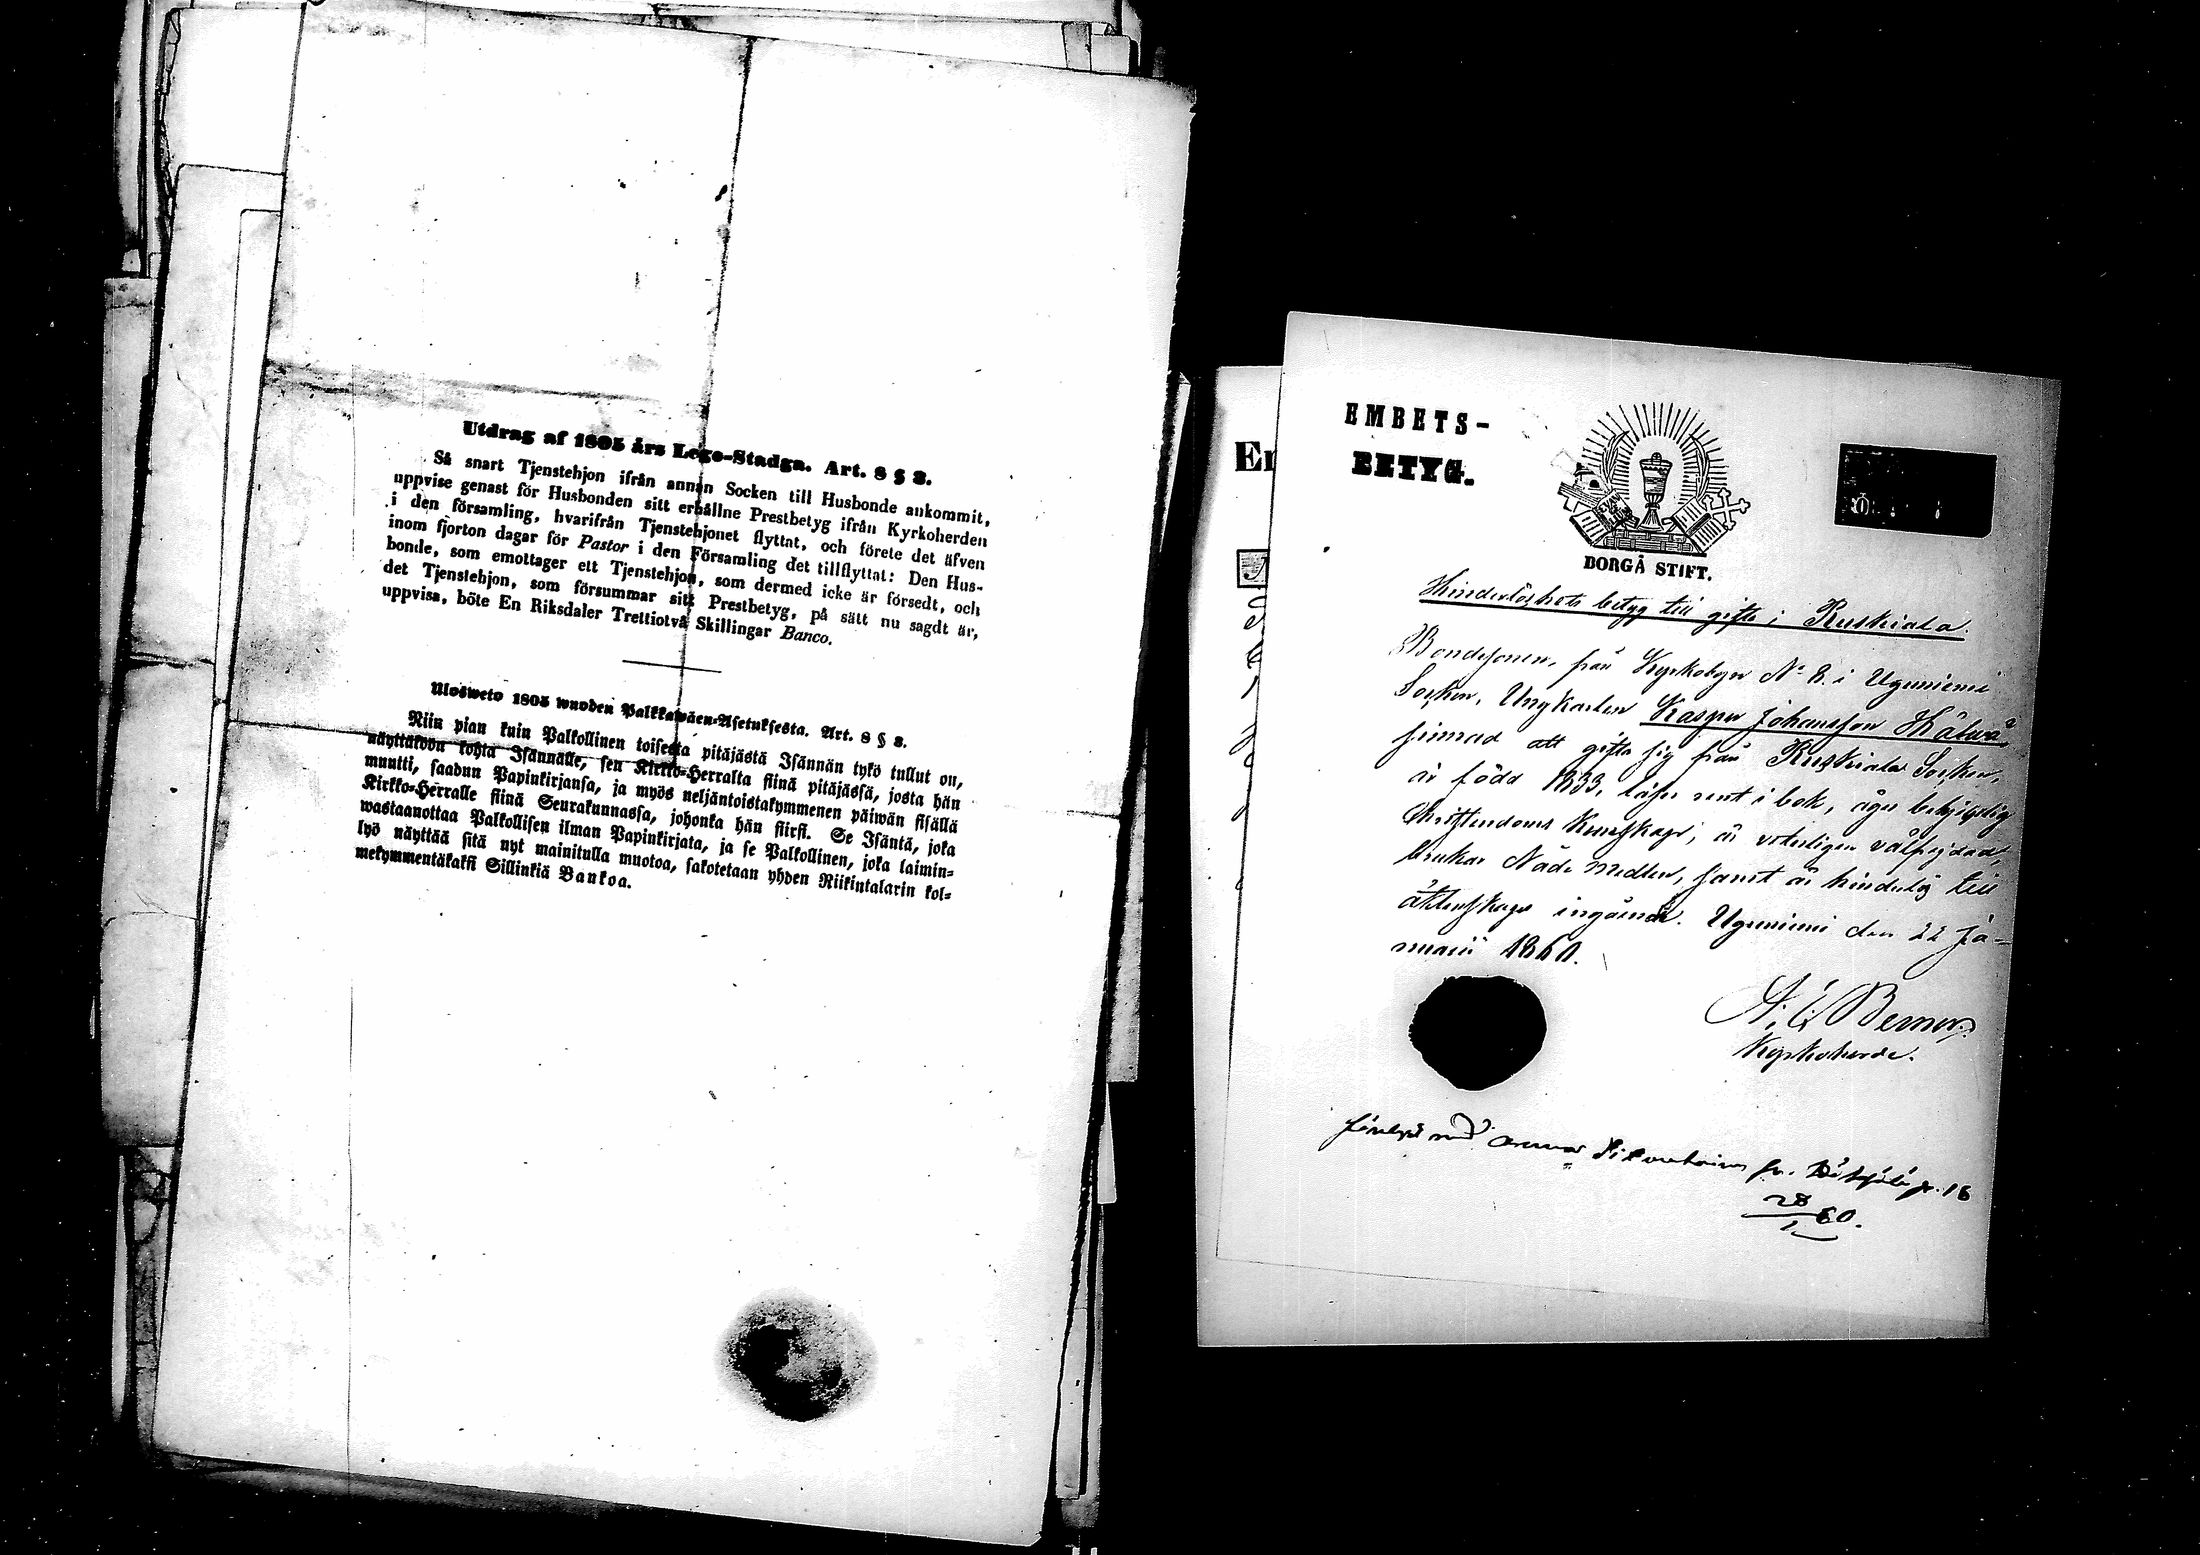 Utdrag af 1805 års Lego-Stadga. Art. 8 § 3.
Så snart Tjenstehjon ifrån annan Socken till Husbonde ankommit,
uppvise genast för Husbonden sitt erhållne Prestbetyg ifrån Kyrkoherden
i den församling, hvarifrån Tjenstehjonet flyttat, och förete det äfven
inom fjorton dagar för Pastor i den Församling det tillflyttat: Den Hus-
bonde, som emottager ett Tjenstehjon, som dermed icke är försedt, och
det Tjenstehjon, som försummar sitt Prestbetyg, på sätt nu sagdt är,
uppvisa, böte En Riksdaler Trettiotvå Skillingar Banco.
Ulosweto 1805 wuoden Palkkawäen-Asetuksesta. Art. 8 § 3.
Niin pian kuin Palkollinen toisesta pitäjästä Isännän tykö tullut on,
näyttäköön kohta Isännälle, sen Kirkko-Herralta siinä pitäjässä, josta hän
muutti, saadun Papinkirjansa, ja myös neljäntoistakymmenen päiwän sisällä
Kirkko-Herralle siinä Seurakunnassa, johonka hän siirsi. Se Isäntä, joka
wastaanottaa Palkollisen ilman Papinkirjata, ja se Palkollinen, joka laimin=
lyö näyttää sitä nyt mainitulla muotoa, sakotetaan yhden Riikintalarin kol=
mekymmentäkaksi Sillinkiä Bankoa.
EMBETS-
BETYG.
BORGÅ STIFT.
Hinderlöshets betyg till gifte i Ruskiala.
Bondesonen, från Kyrkobyn No 8. i Uguniemi
Socken, Ungkarlen Kasper Johansson Hälwä,
sinnad att gifta sig från Ruskiala Socken,
är född 1833, läser rent i bok, äger behjelplig
Christendoms kunskap; är veterligen välfrejdad,
brukar Nåde medlen, samt är hinderlös till
äktenskaps ingående. Uguniemi den 22 Ja-
nuarii 1860.
A. E. Berner
Kyrkoherde.
med Anna
28
1 60.